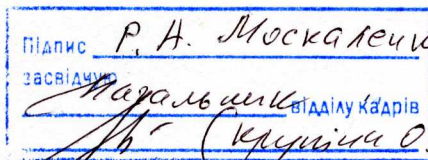 Підпис Р. А. Москаленк
засвідчую
Начальник відділу кадрів
(Крупіна О.